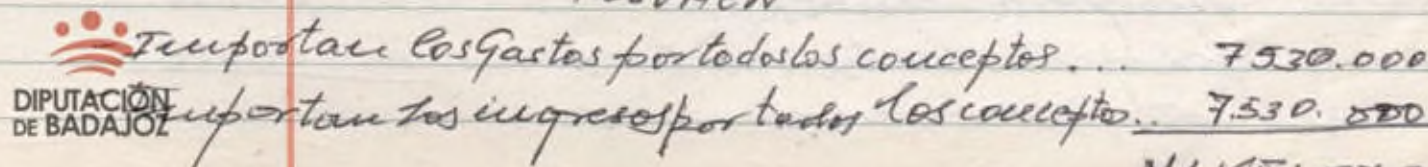 Importan los Gastos por todos los conceptos... 7530.000
DIPUTACIÓN
DE BADAJOZ
Importan los ingresos por todos los concepto.. 7.530.000